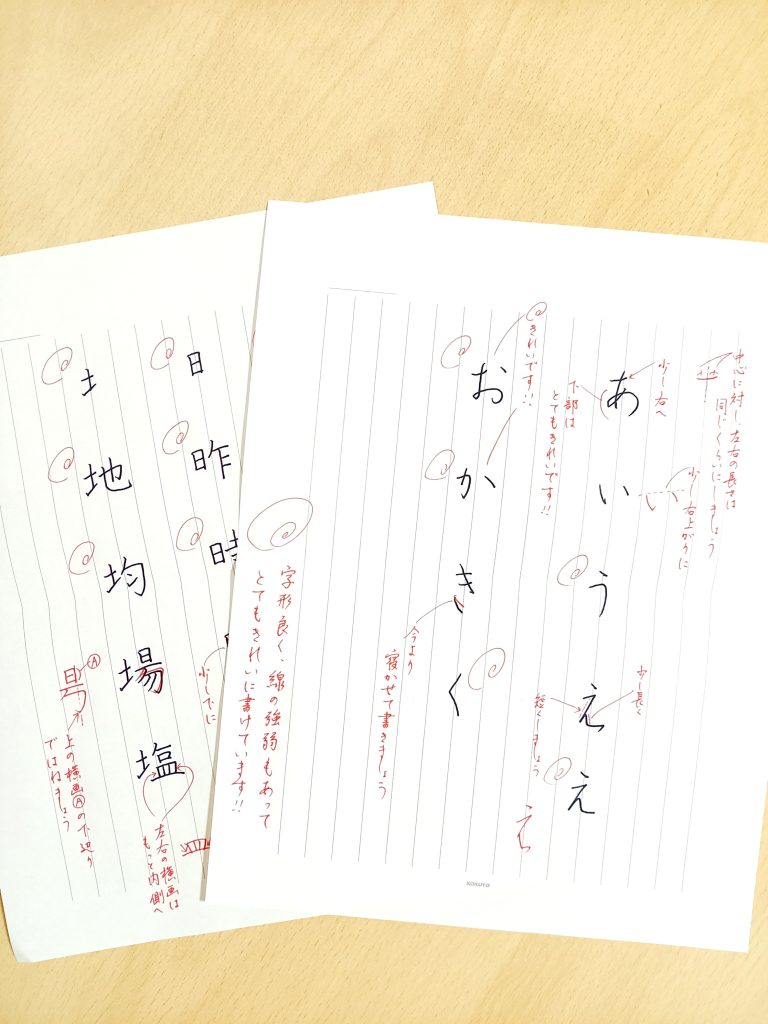 中心に対し左右の長さは
同じくらいにしましょう
少し右上がりに
少し右へ
あ
い
う
え
え
下部は
とてもきれいです!!
少し長く
短くしましょう
え
きれいです!!
お
か
き
く
今より
寝かせて書きましょう
字形良く、線の強弱もあって
とてもきれいに書けています!!
KOKUYO
日
昨
時
少し下に
土
地
均
場
塩
Ⓐ
上の横画Ⓐの下辺り
ではねましょう
左右の横画は
もっと内側へ